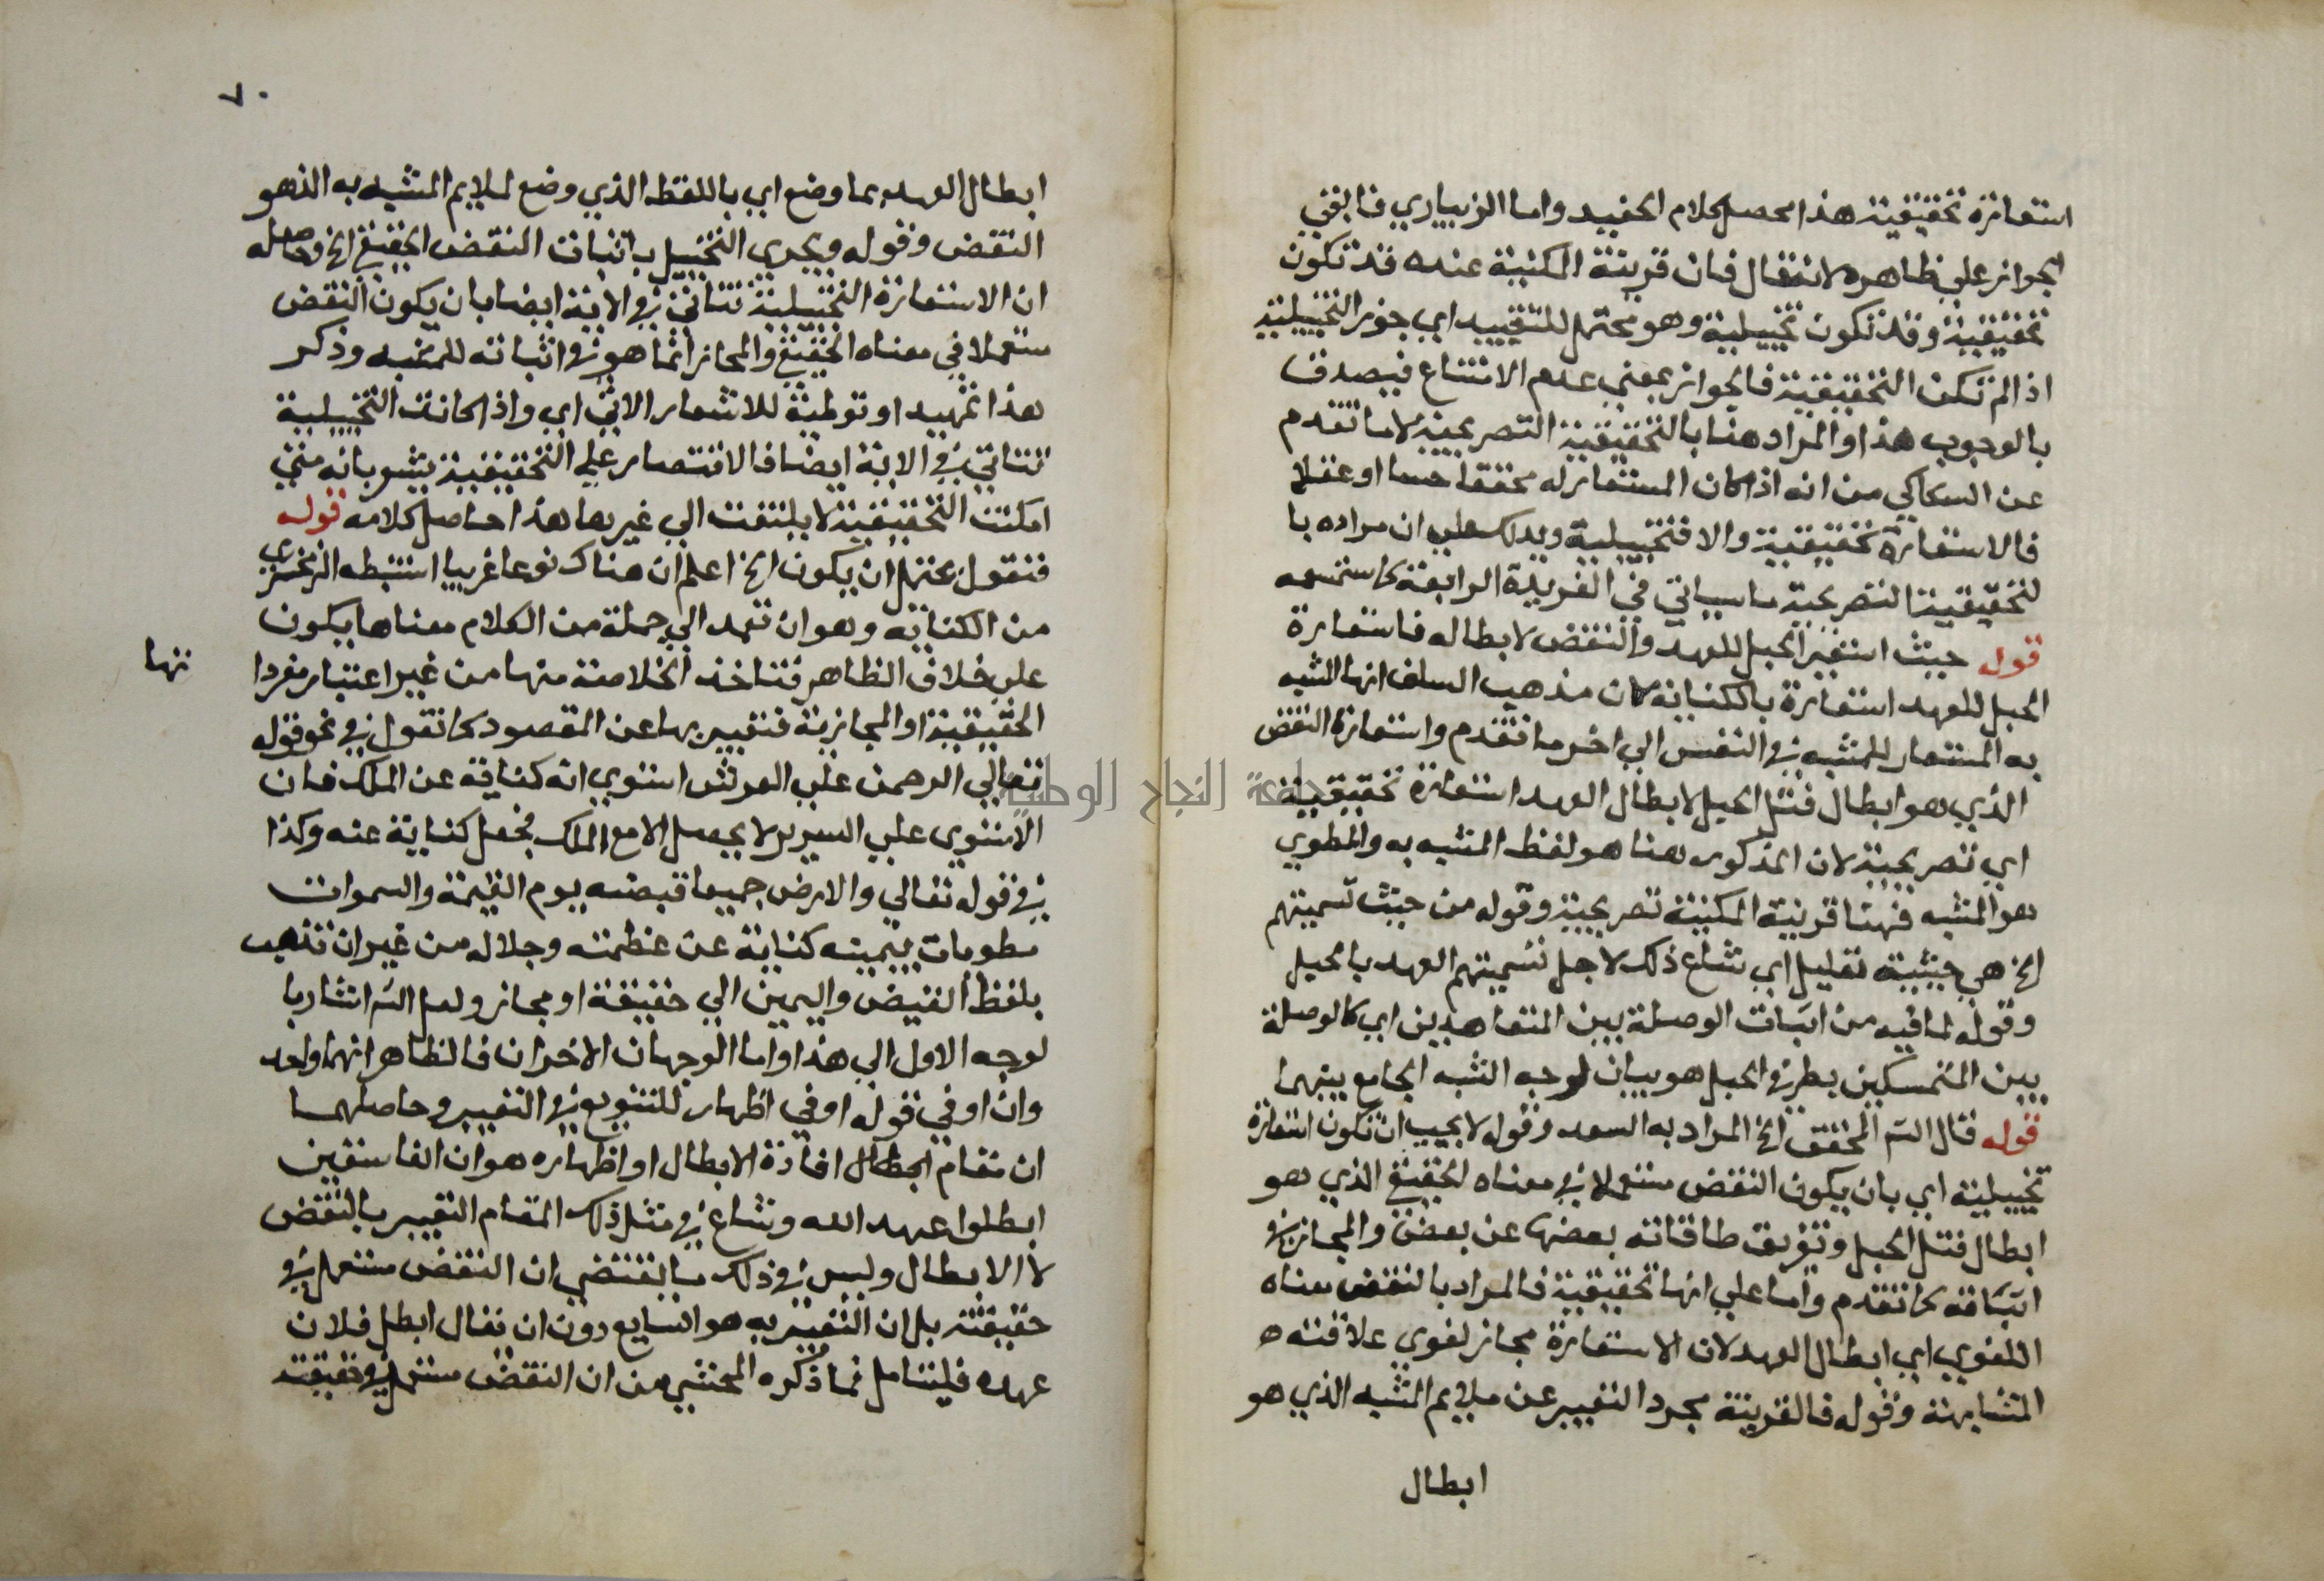 استعارة تحقيقية هذا محصل كلام الحفيد واما الزيباري فابقي
الجواز علي ظاهره لانتقال فان قرينة المكنية عنده قد تكون
تحقيقية وقد تكون تخييلية وهو محتمل للتقييد اي جوز التخييلية
اذا لم تكن التحقيقية فالجواز بمعني عدم الامتناع فيصدق
بالوجوب هذا والمراد هنا بالتحقيقية التصريحية لا ما تقدم
عن السكاكي من انه اذا كان المستعار له محققا حسا او عقلا
فالاستعارة تحقيقية والا فتخييلية ويدلك علي ان مراده با
لتحقيقية التصريحية ما سياتي في الفريدة الرابعة كما ستسمعه
قوله حيث استعير الحبل للعهد والنقض لابطاله فاستعارة
الحبل للعهد استعارة بالكناية كان مذهب السلف انها المشبه
به المستعار للمشبه في النفس الي اخر ما تقدم واستعارة النقض
الذي هو ابطال فتل الحبل لابطال العهد استعارة تحقيقية
اي تصريحية لان المذكور هنا هو لفظ المشبه به والمطوي
هو المشبه فهنا قرينة المكنية تصريحية وقوله من حيث تسميتهم
الخ هي حيثية تعليل اي شاع ذلك لاجل تسميتهم العهد بالحبل
وقوله لما فيه من اثبات الوصلة بين المتعاهدين اي كالوصلة
بين المتمسكين بطرفي الحبل هو بيان لوجه الشبه الجامع بينهما
قوله قال الش المحقق الخ المراد به السعد وقوله لا يجب ان تكون استعارة
تخييلية اي بان يكون النقض مستعملا في معناه الحقيقي الذي هو
ابطال فتل الحبل وتفريق طاقاته بعضها عن بعض والمجاز في
اثباته كما تقدم واما علي انها تحقيقية فالمراد بالنقض معناه
اللغوي اي ابطال العهد لان الاستعارة مجاز لغوي علاقته ه
المشابهة وقوله فالقرينة مجرد التعبير عن ملايم المشبه الذي هو
ابطال
٧٠
ابطال العهد بما وضع اي باللفظ الذي وضع لملايم المشبه به الذهو
النقض وقوله ويجري التخييل باثبات النقض الحقيقي الخ وحاصله
ان الاستعارة التخييلية تتاتي في الاية ايضا بان يكون النقض
مستعملا في معناه الحقيقي والمجاز انما هو في اثباته للمشبه وذكر
هذا تمهيد او توطئة للاشعار الاتي اي واذا كانت التخييلية
تتاتي في الاية ايضا فالاقتصار علي التحقيقية يشعر بانه متي
امكنت التحقيقية لا يلتفت الي غيرها هذا حاصل كلامه قوله
فنقول يحتمل ان يكون الخ اعلم ان هناك نوعا غريبا استنبطه الزمخشري
من الكناية وهو ان تعمد الي جملة من الكلام معناها يكون
علي خلاف الظاهر فتاخذ الخلاصة منها من غير اعتبار مفردا
تها
الحقيقية او المجازية فتعبر بها عن المقصود كما تقول في نحو قوله
تعالي الرحمن علي العرش استوي انه كناية عن الملك فان
الاستوي علي السرير لا يحصل الا مع الملك فجعل كناية عنه وكذا
في قوله تعالي والارض جميعا قبضته يوم القيمة والسموات
مطويات بيمينه كناية عن عظمته وجلاله من غير ان تذهب
بلفظ القبض واليمين الي حقيقة او مجاز ولعل الش اشار با
لوجه الاول الي هذا واما الوجهان الاخران فالظاهر انهما واحد
وان او في قوله او في اظهار للتنويع في التعبير وحاصلهما
ان مقام ابطال افادة الابطال او اظهاره هو ان الفاسقين
ابطلوا عهد الله وشاع في مثل ذلك المقام التعبير بالنقض
لا الابطال وليس في ذلك ما يقتضي ان النقض مستعمل في
حقيقته بل ان التعبير به هو الشايع دون ان يقال ابطل فلان
عهده فليتامل فما ذكره المحشي من ان النقض مستعمل في حقيقته